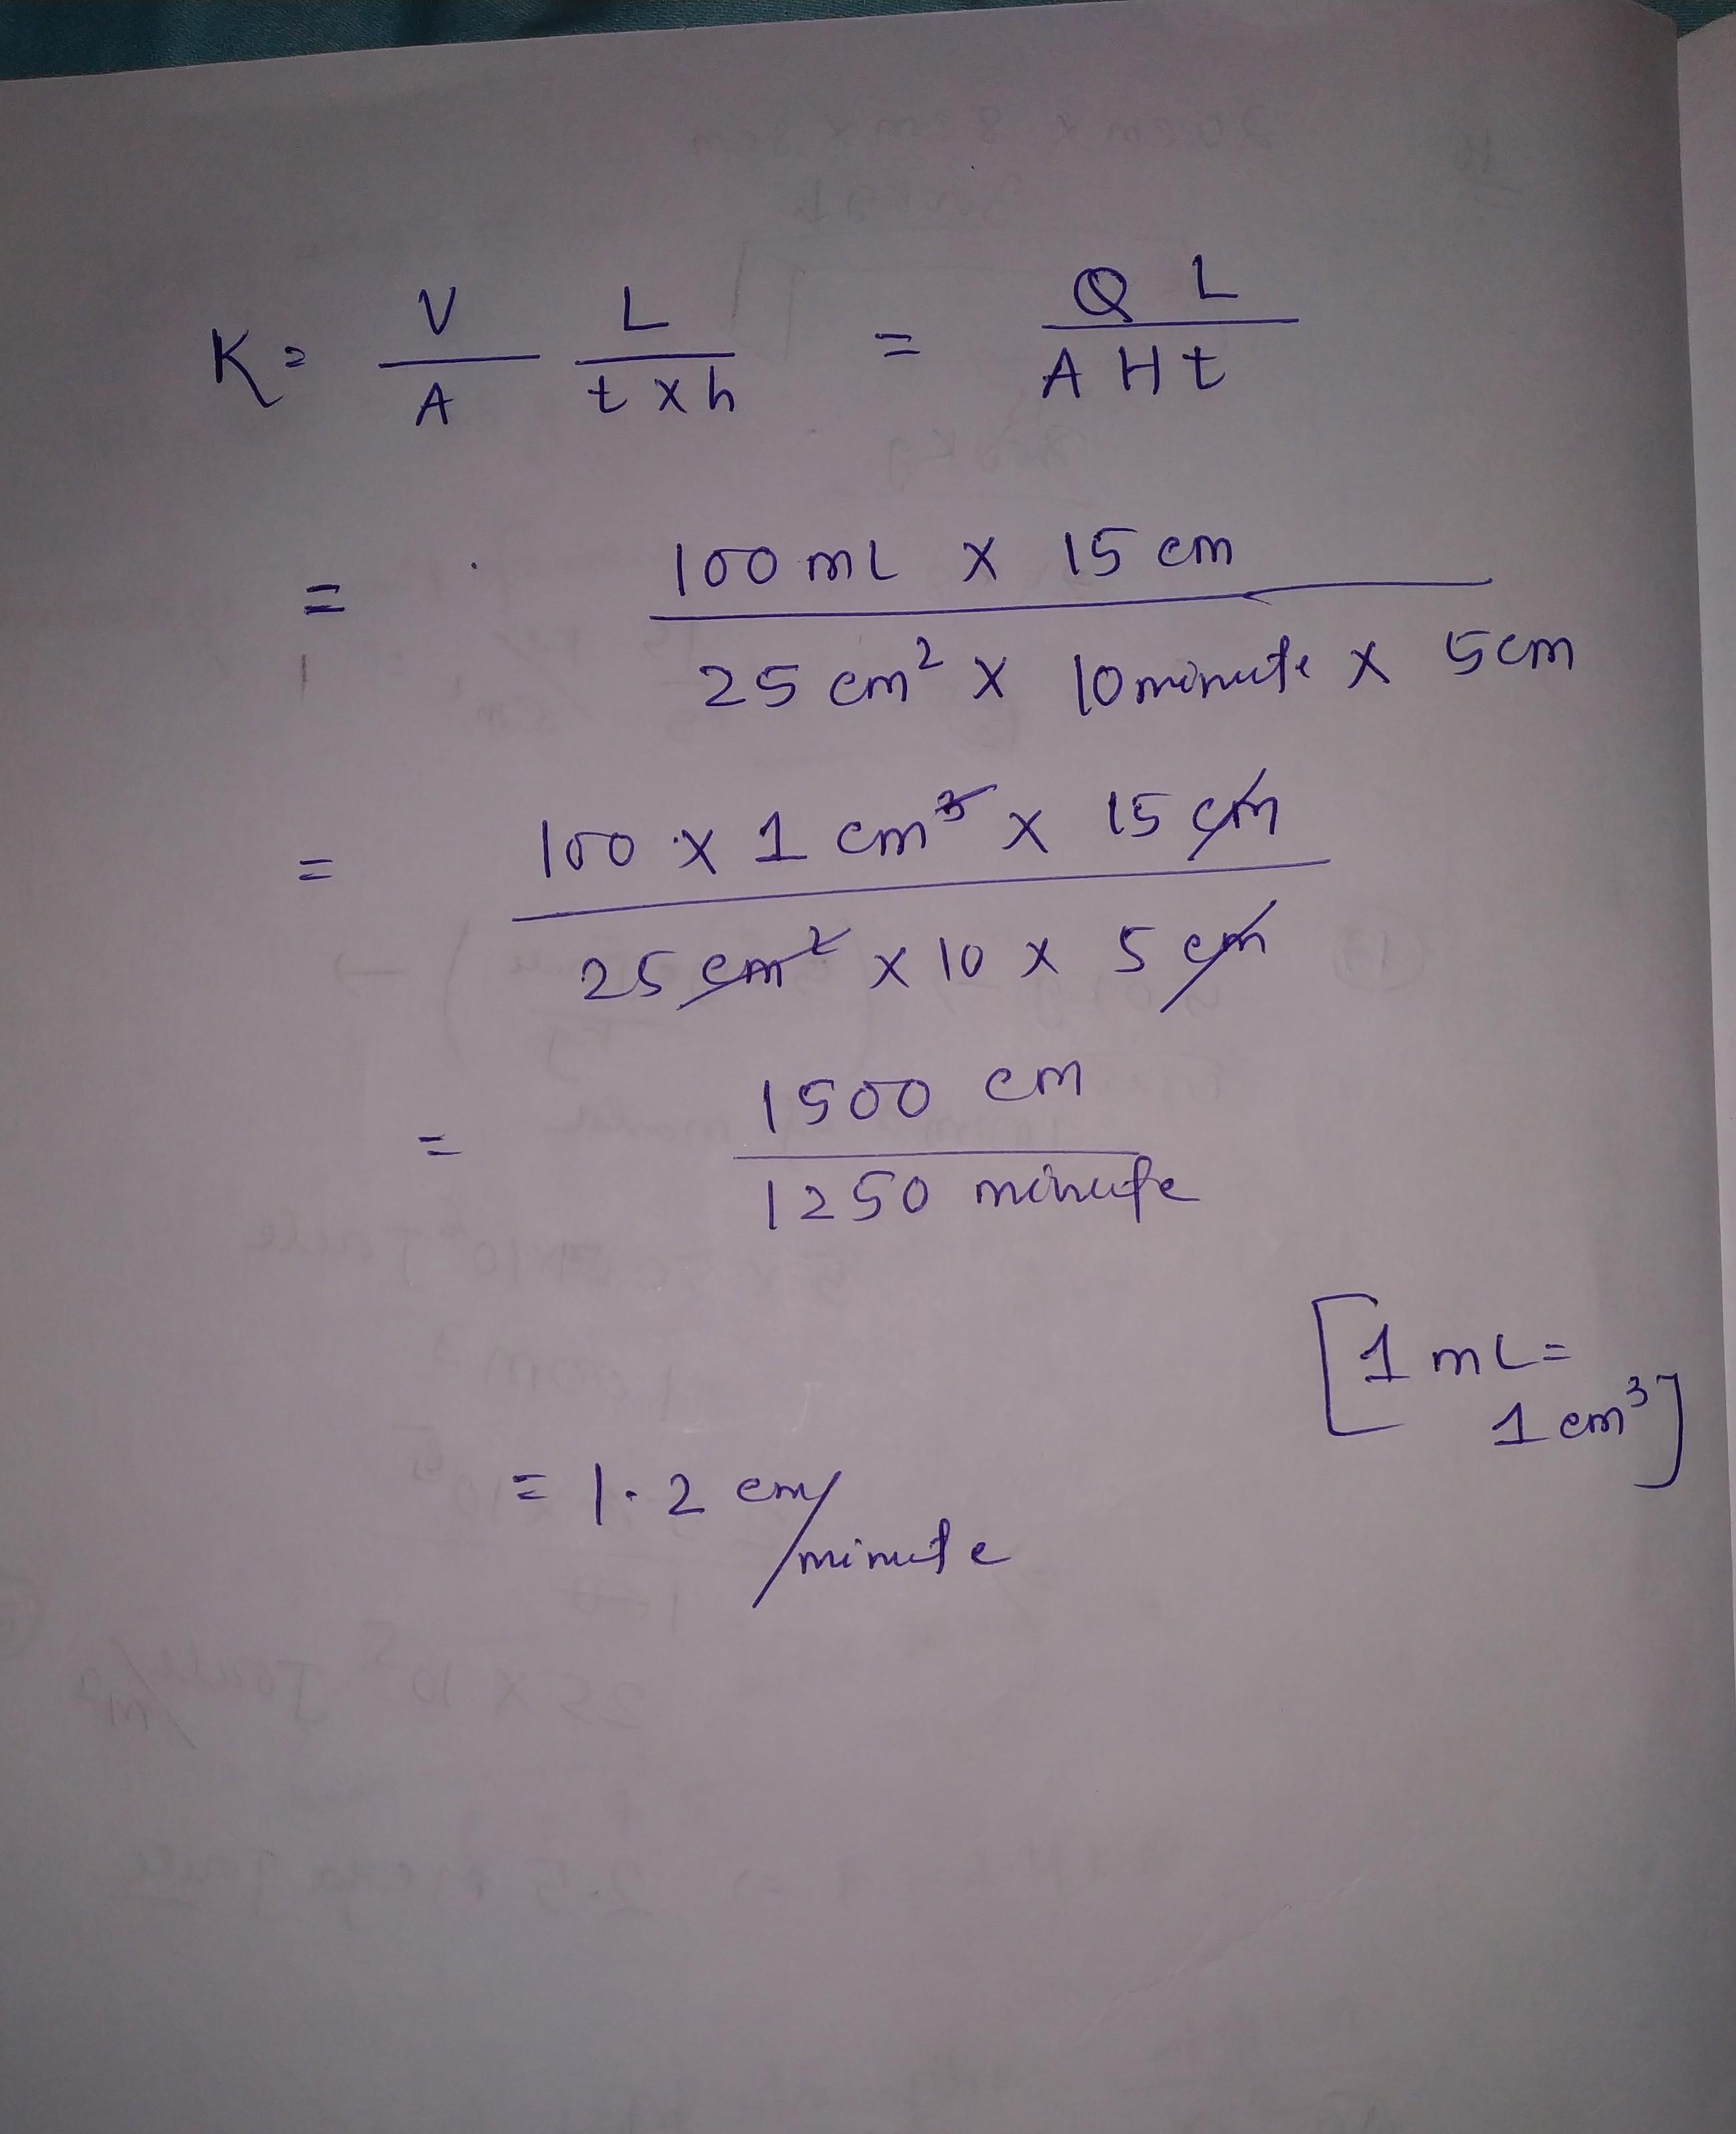 K = V/A L/t x h = Q L/A H t
= 100 mL x 15 cm/25 cm² x 10 minute x 5 cm
= 100 x 1 cm³ x 15 cm/25 cm² x 10 x 5 cm
= 1500 cm/1250 minute
[1 mL =
1 cm³]
= 1.2 cm/minute